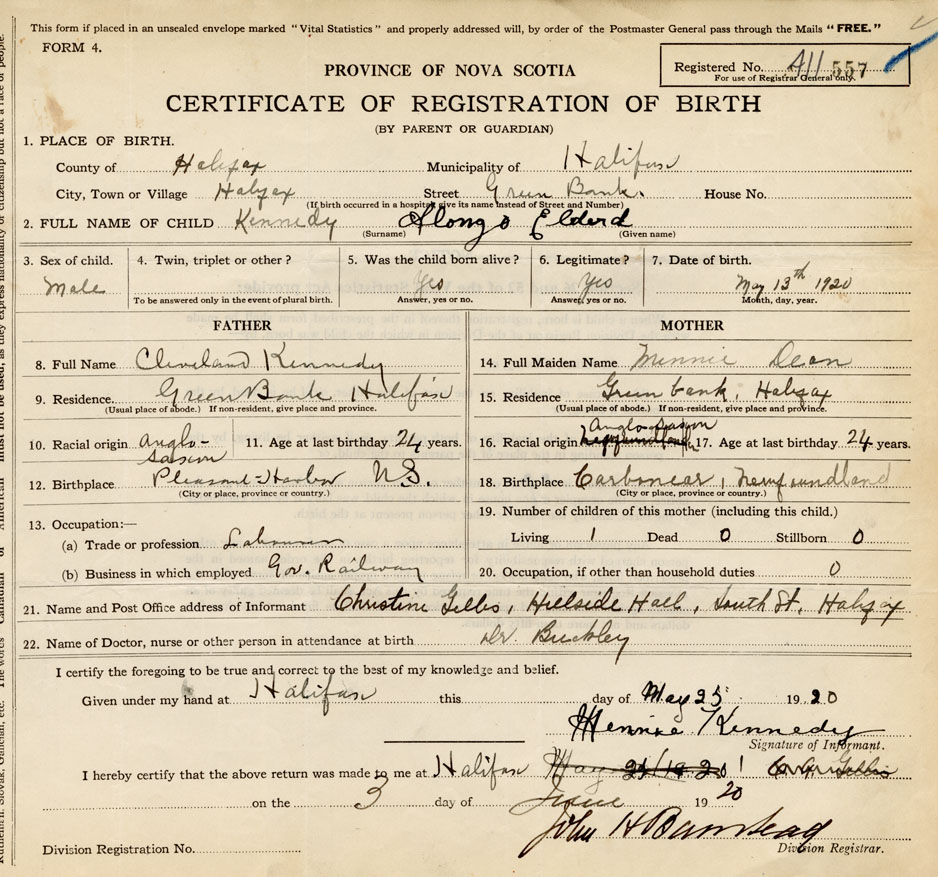 This form if placed in an unsealed envelope marked "Vital Statistics" and properly addressed will, by order of the Postmaster General pass through the Mails "FREE."
FORM 4.
Registered No. 411 557
For use of Registrar General only.
PROVINCE OF NOVA SCOTIA
CERTIFICATE OF REGISTRATION OF BIRTH
(BY PARENT OR GUARDIAN)
1. PLACE OF BIRTH.
County of Halifax Municipality of Halifax
City, Town or Village Halifax Street Green Bank. House No.
(If birth occurred in a hospital give its name instead of Street and Number)
2. FULL NAME OF CHILD Kennedy Alongo Elderd
(Surname) (Given name)
3. Sex of child. 4. Twin, triplet or other? 5. Was the child born alive? 6. Legitimate? 7. Date of birth.
Male Yes Yes May 13th 1920
To be answered only in the event of plural birth. Answer, yes or no. Answer, yes or no. Month, day, year.
FATHER MOTHER
8. Full Name Cleveland Kennedy 14. Full Maiden Name Minnie Dean
9. Residence Green Bank Halifax 15. Residence Green bank, Halifax
(Usual place of abode.) If non-resident, give place and province. (Usual place of abode.) If non-resident, give place and province.
10. Racial origin Anglo-Saxon 11. Age at last birthday 24 years. 16. Racial origin Anglo-Saxon 17. Age at last birthday 24 years.
12. Birthplace Pleasant-Harbor N.S. 18. Birthplace Carbonear, Newfoundland
(City or place, province or country.) (City or place, province or country.)
13. Occupation:— 19. Number of children of this mother (including this child.)
(a) Trade or profession Labourer Living 1 Dead 0 Stillborn 0
(b) Business in which employed Gov. Railway 20. Occupation, if other than household duties 0
21. Name and Post Office address of Informant Christine Gillis, Hillside Hall, South St. Halifax
22. Name of Doctor, nurse or other person in attendance at birth Dr. Buckley
I certify the foregoing to be true and correct to the best of my knowledge and belief.
Given under my hand at Halifax this day of May 25 1920
Minnie Kennedy
Signature of Informant.
I hereby certify that the above return was made to me at Halifax May Gillis
on the 3 day of June 1920
John H Barnstead
Division Registration No. Division Registrar.